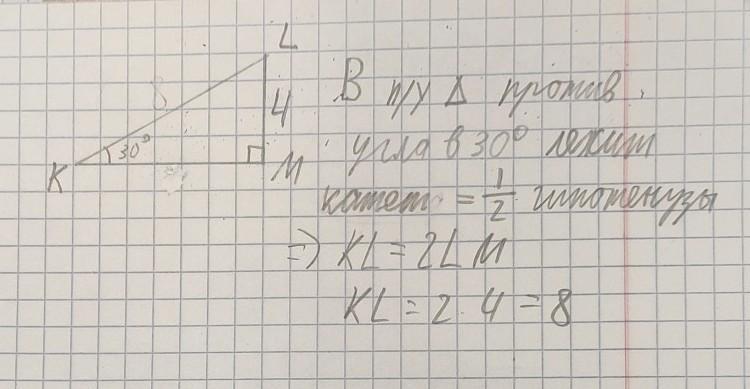 L
8
4
30°
K
M
В п/у Δ против
угла в 30° лежит
катет = 1/2 гипотенузы
=> KL = 2LM
KL = 2 · 4 = 8